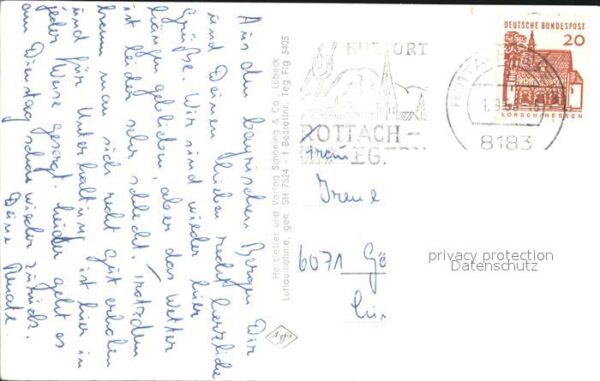 Aus den bayrischen Bergen Dir
und Deinen Lieben recht herzliche
Grüße. Wir sind wieder hier
hängen geblieben, aber das Wetter
ist leider sehr schlecht. Trotzdem
kann man sich recht gut erholen
und für Unterhaltung ist hier in
jeder Weise gesorgt. Leider geht es
am Dienstag schon wieder zurück.
Deine Renate
Hersteller und Verlag Schöning & Co., Lübeck
Luftaufnahme, gen. SH 7524-1 Bestellnr. Teg Flg 5103
KURORT
ROTTACH-
EGERN
8183
DEUTSCHE BUNDESPOST
20
LORSCH/HESSEN
Frau
Irene
6071 Gö
privacy protection
Datenschutz